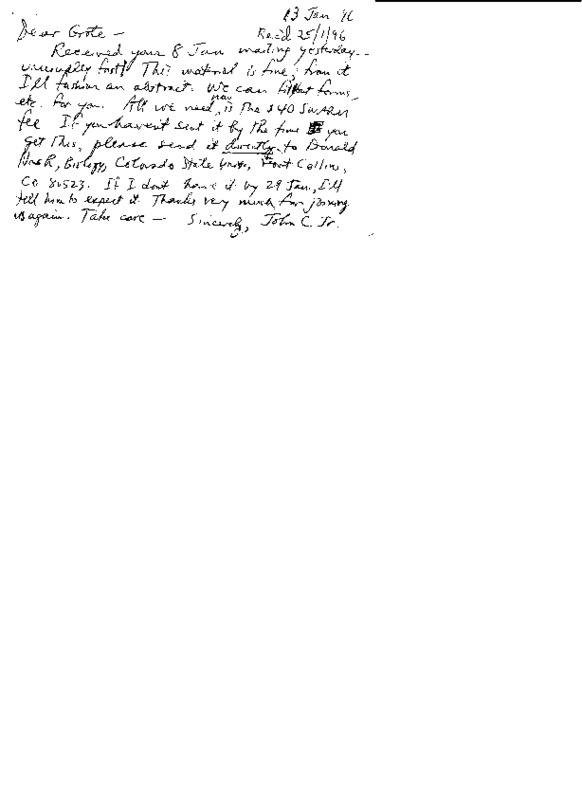 13 Jan '96
Dear Grote – Rec'd 25/1/96
Received your 8 Jan mailing yesterday --
unusually fast! This material is fine; from it
I'll fashion an abstract. We can fill out forms,
etc. for you. All we need now is the $40 SWARM
fee If you haven't sent it by the time you
get this, please send it directly to Donald
Nash, Biology, Colorado State Univ., Fort Collins,
Co 80523. If I don't have it by 29 Jan., I'll
tell him to expect it. Thanks very much for joining
us again. Take care — Sincerely, John C. Jr.